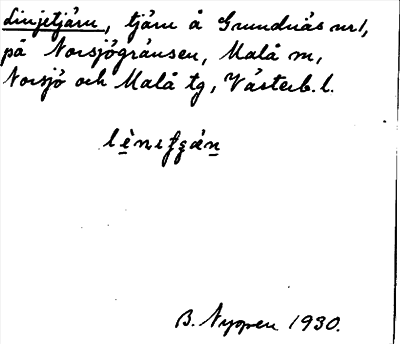 Linjetjärn, tjärn å Grundnäs nr 1,
på Norsjögränsen, Malå sn,
Norsjö och Malå tg, Västerb. l.
B. Nyman 1930.